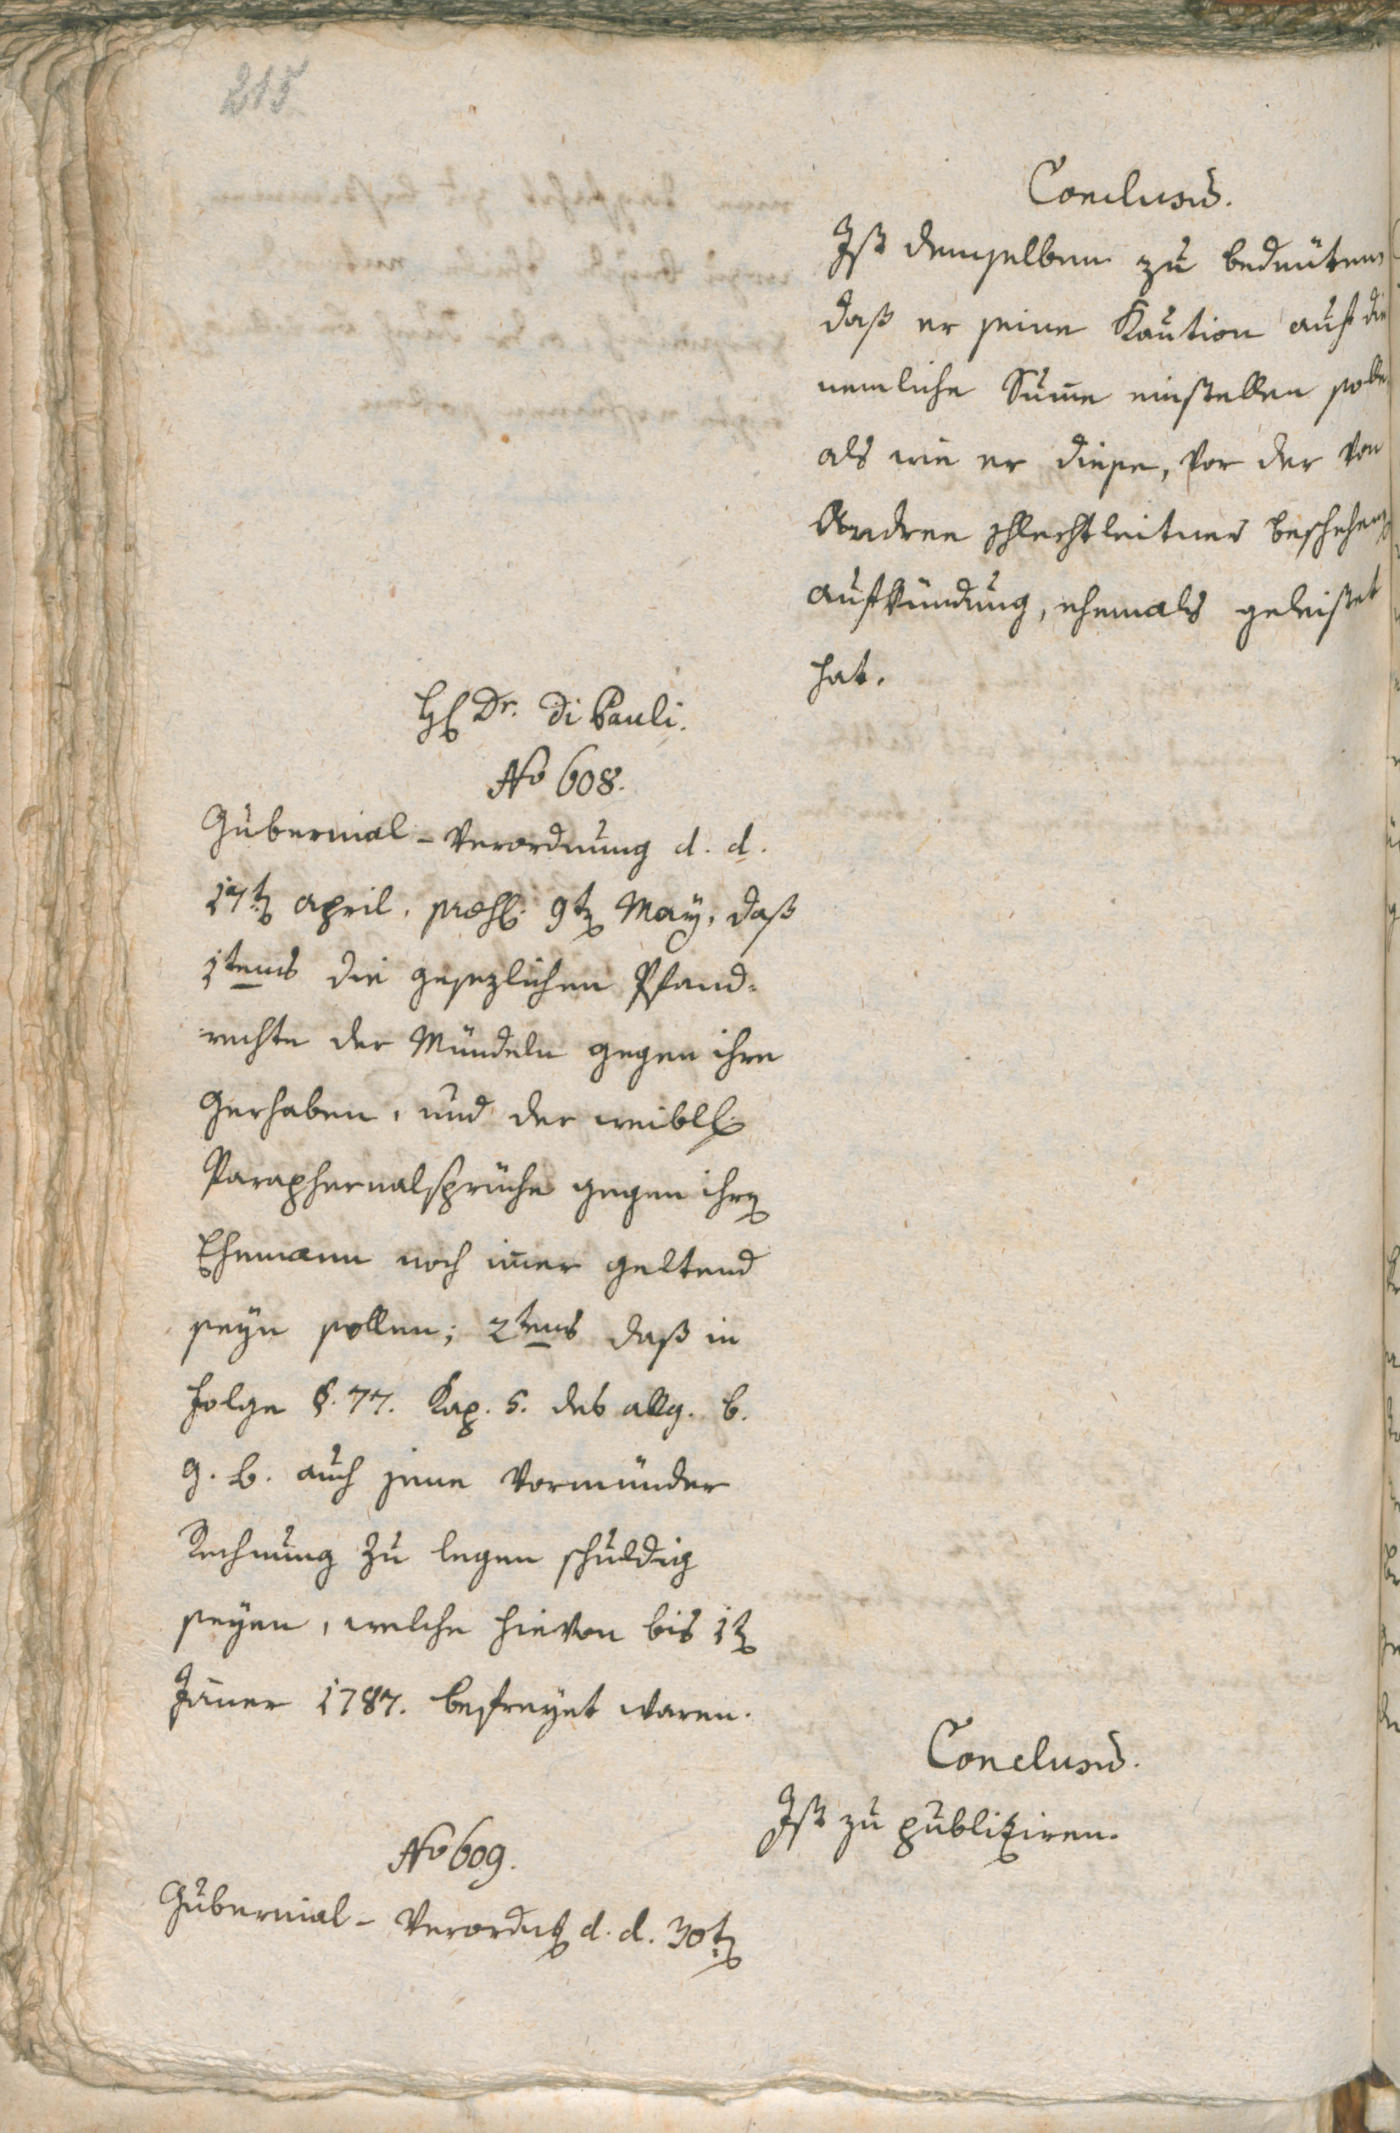 215
Conclusum.
Ist demselben zu bedeuten,
daß er seine Kaution auf die
nemliche Sum̅e einstellen solle,
als wie er diese, vor der von
Andree schlechtleitner beschehenen
aufkündung, ehemals geleistet
hat.
H. Dr. Di Pauli.
No 608.
Gubernial-Verordnung d. d.
17ten april, præs. 9ten May, daß
1tens die gesezlichen Pfand-
rechte der Mündeln gegen ihre
Gerhaben, und der weibl.
Paraphernalsprüche gegen ihren
Ehemann noch im̅er geltend
seyn sollen; 2tens daß in
Folge §. 77. Kap. 5. des allg. b.
g. b. auch jene Vormünder
Rechnung zu legen schuldig
seyen, welche hievon bis 1ten
Jän̅er 1787. befreyet waren.
Conclusum.
Ist zu publiziren.
No 609.
Gubernial-Verordng d. d. 30ten